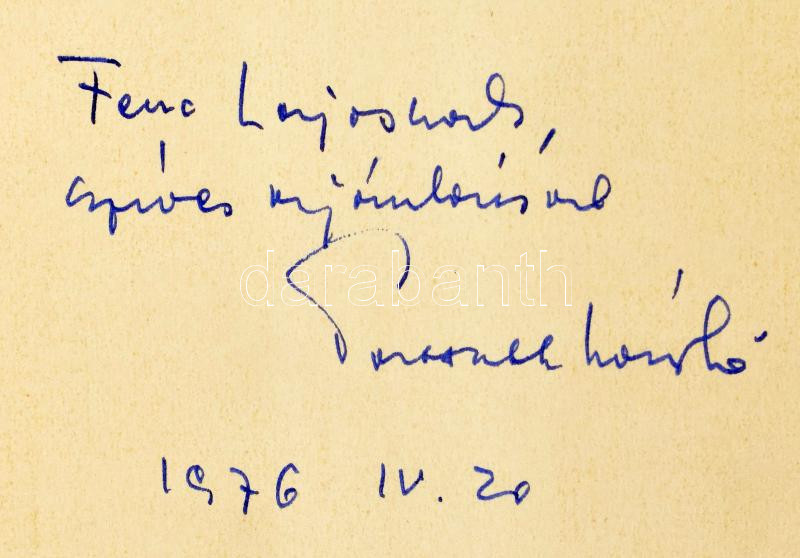 Lajosnak,
szíves ajánlással
darabanth
Passuth László
1976 IV. 20